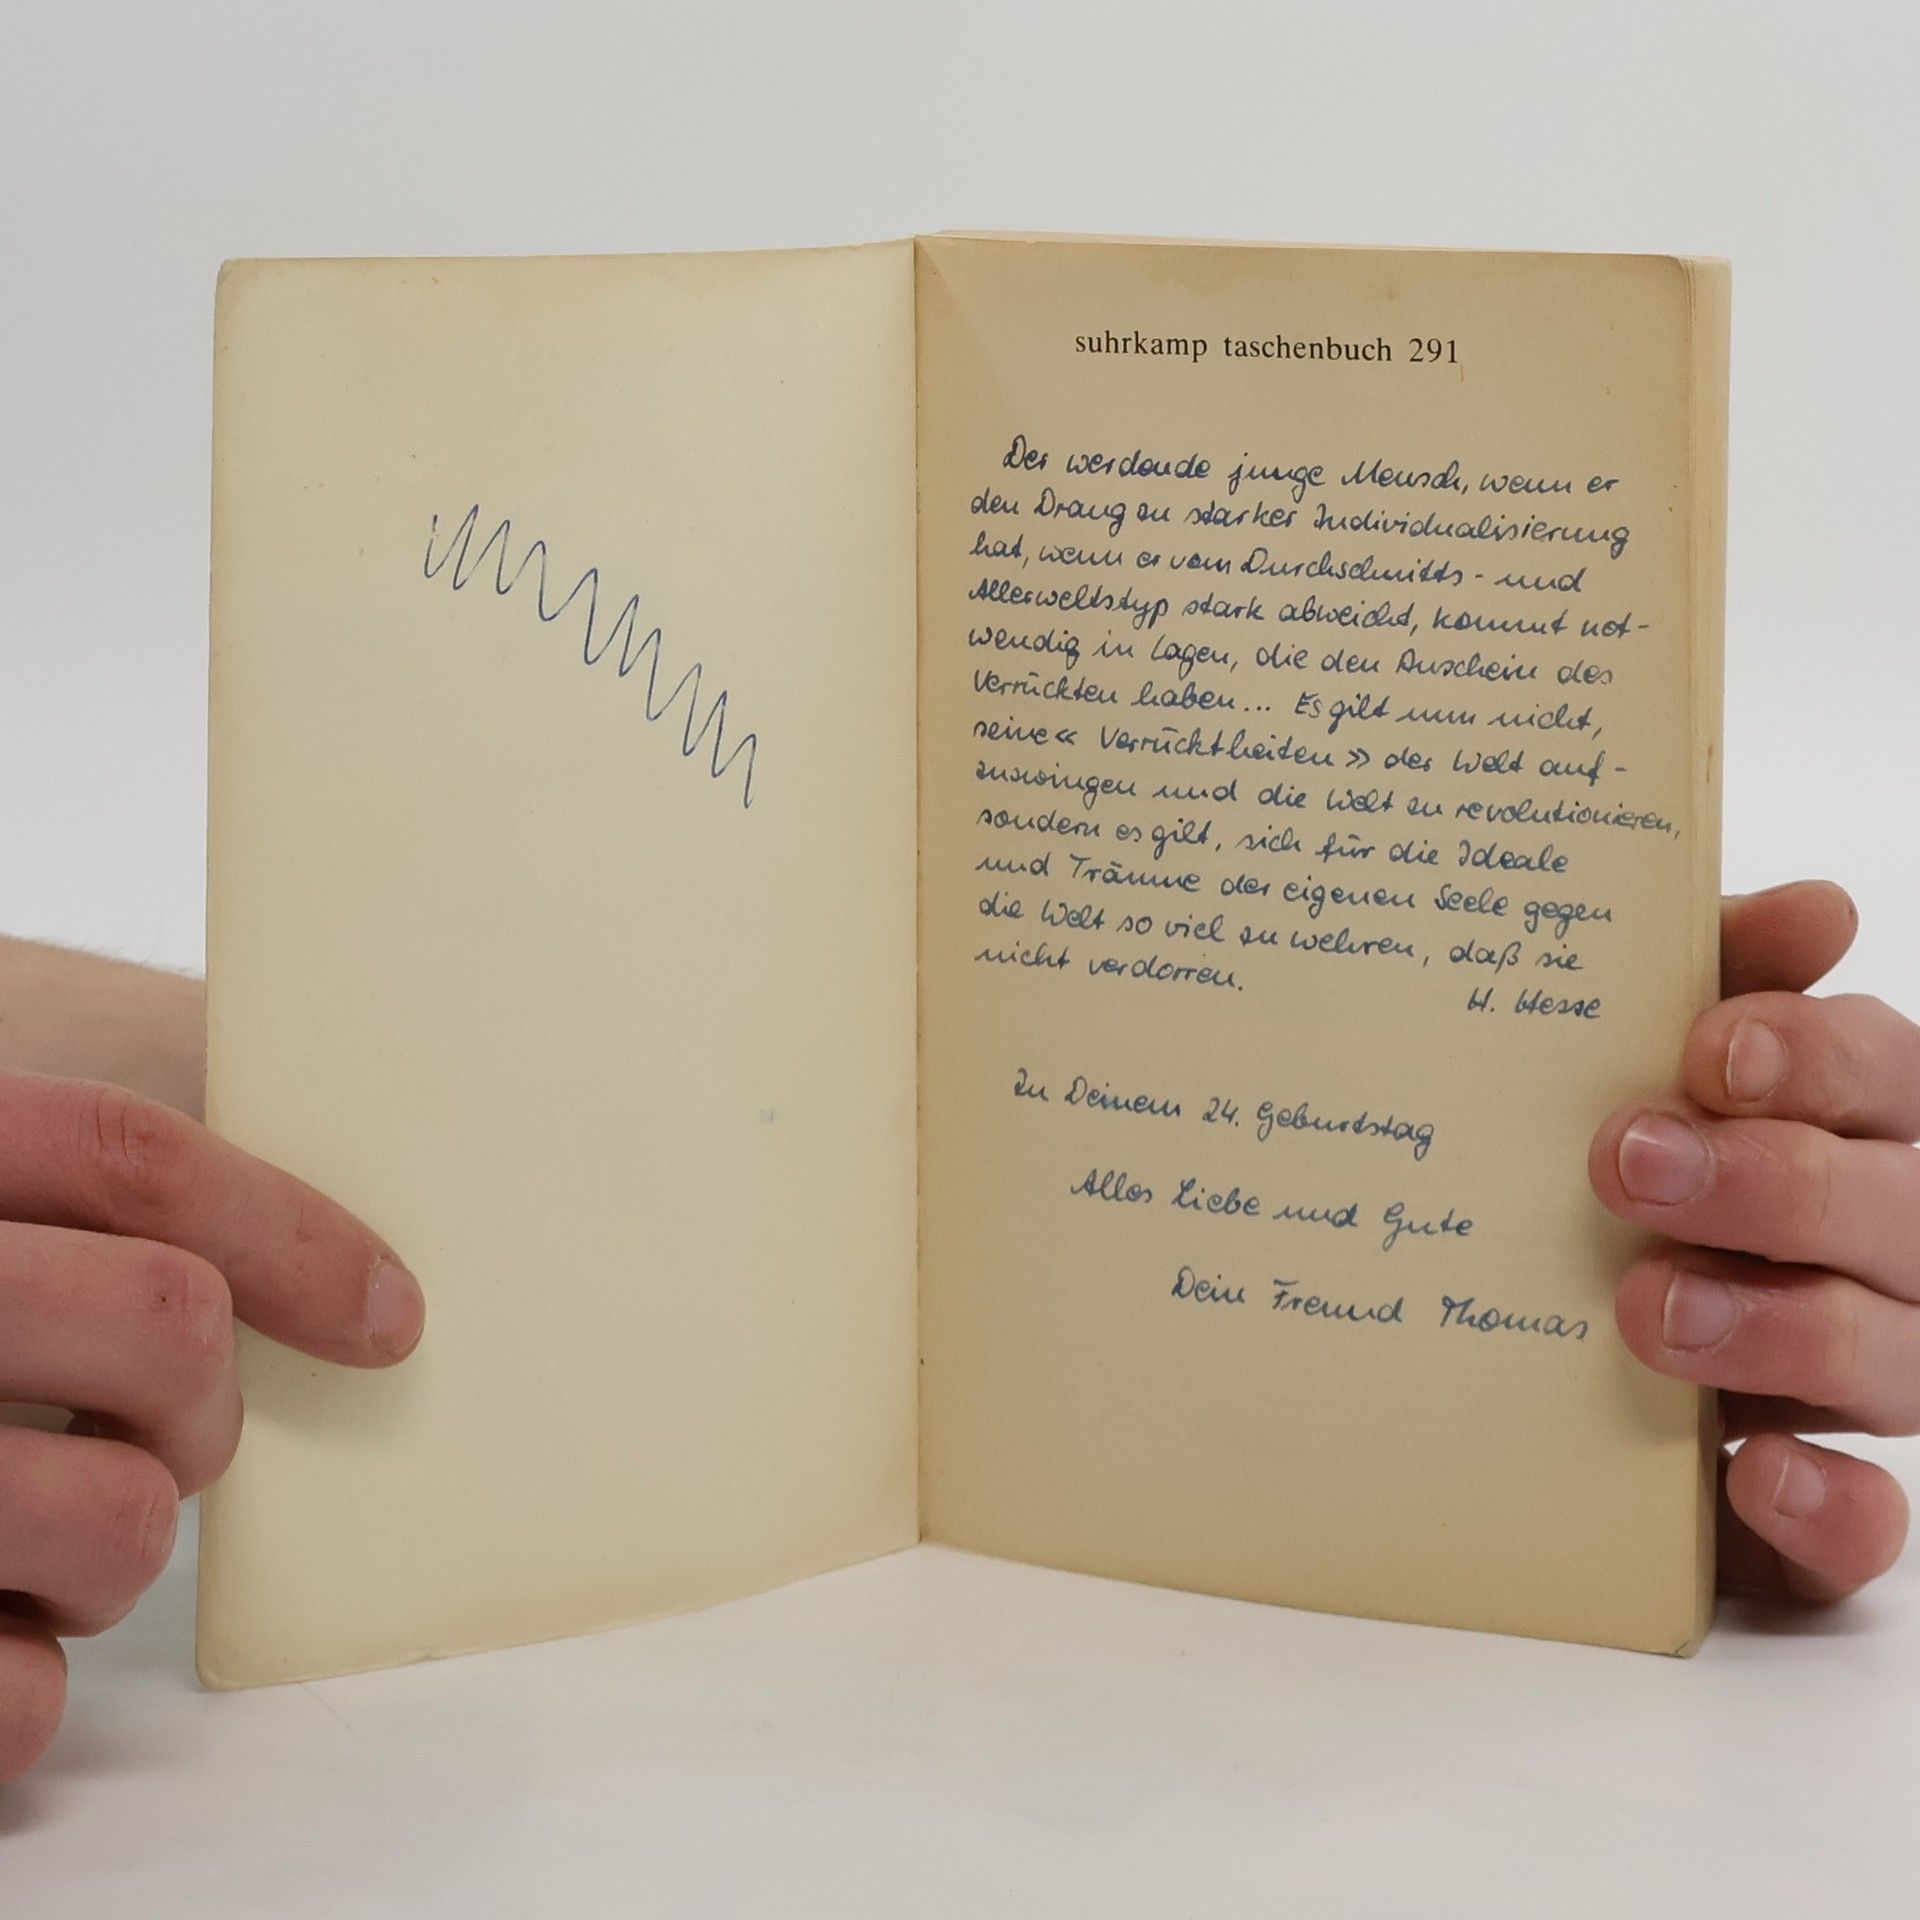 suhrkamp taschenbuch 291
Der werdende junge Mensch, wenn er
den Drang zu starker Individualisierung
hat, wenn er vom Durchschnitts- und
Allerweltstyp stark abweicht, kommt not-
wendig in Lagen, die den Anschein des
Verrückten haben... Es gilt nun nicht,
seine « Verrücktheiten » der Welt auf-
zuzwingen und die Welt zu revolutionieren,
sondern es gilt, sich für die Ideale
und Träume der eigenen Seele gegen
die Welt so viel zu wehren, daß sie
nicht verdorren.
H. Hesse
Zu Deinem 24. Geburtstag
Alles Liebe und Gute
Dein Freund Thomas